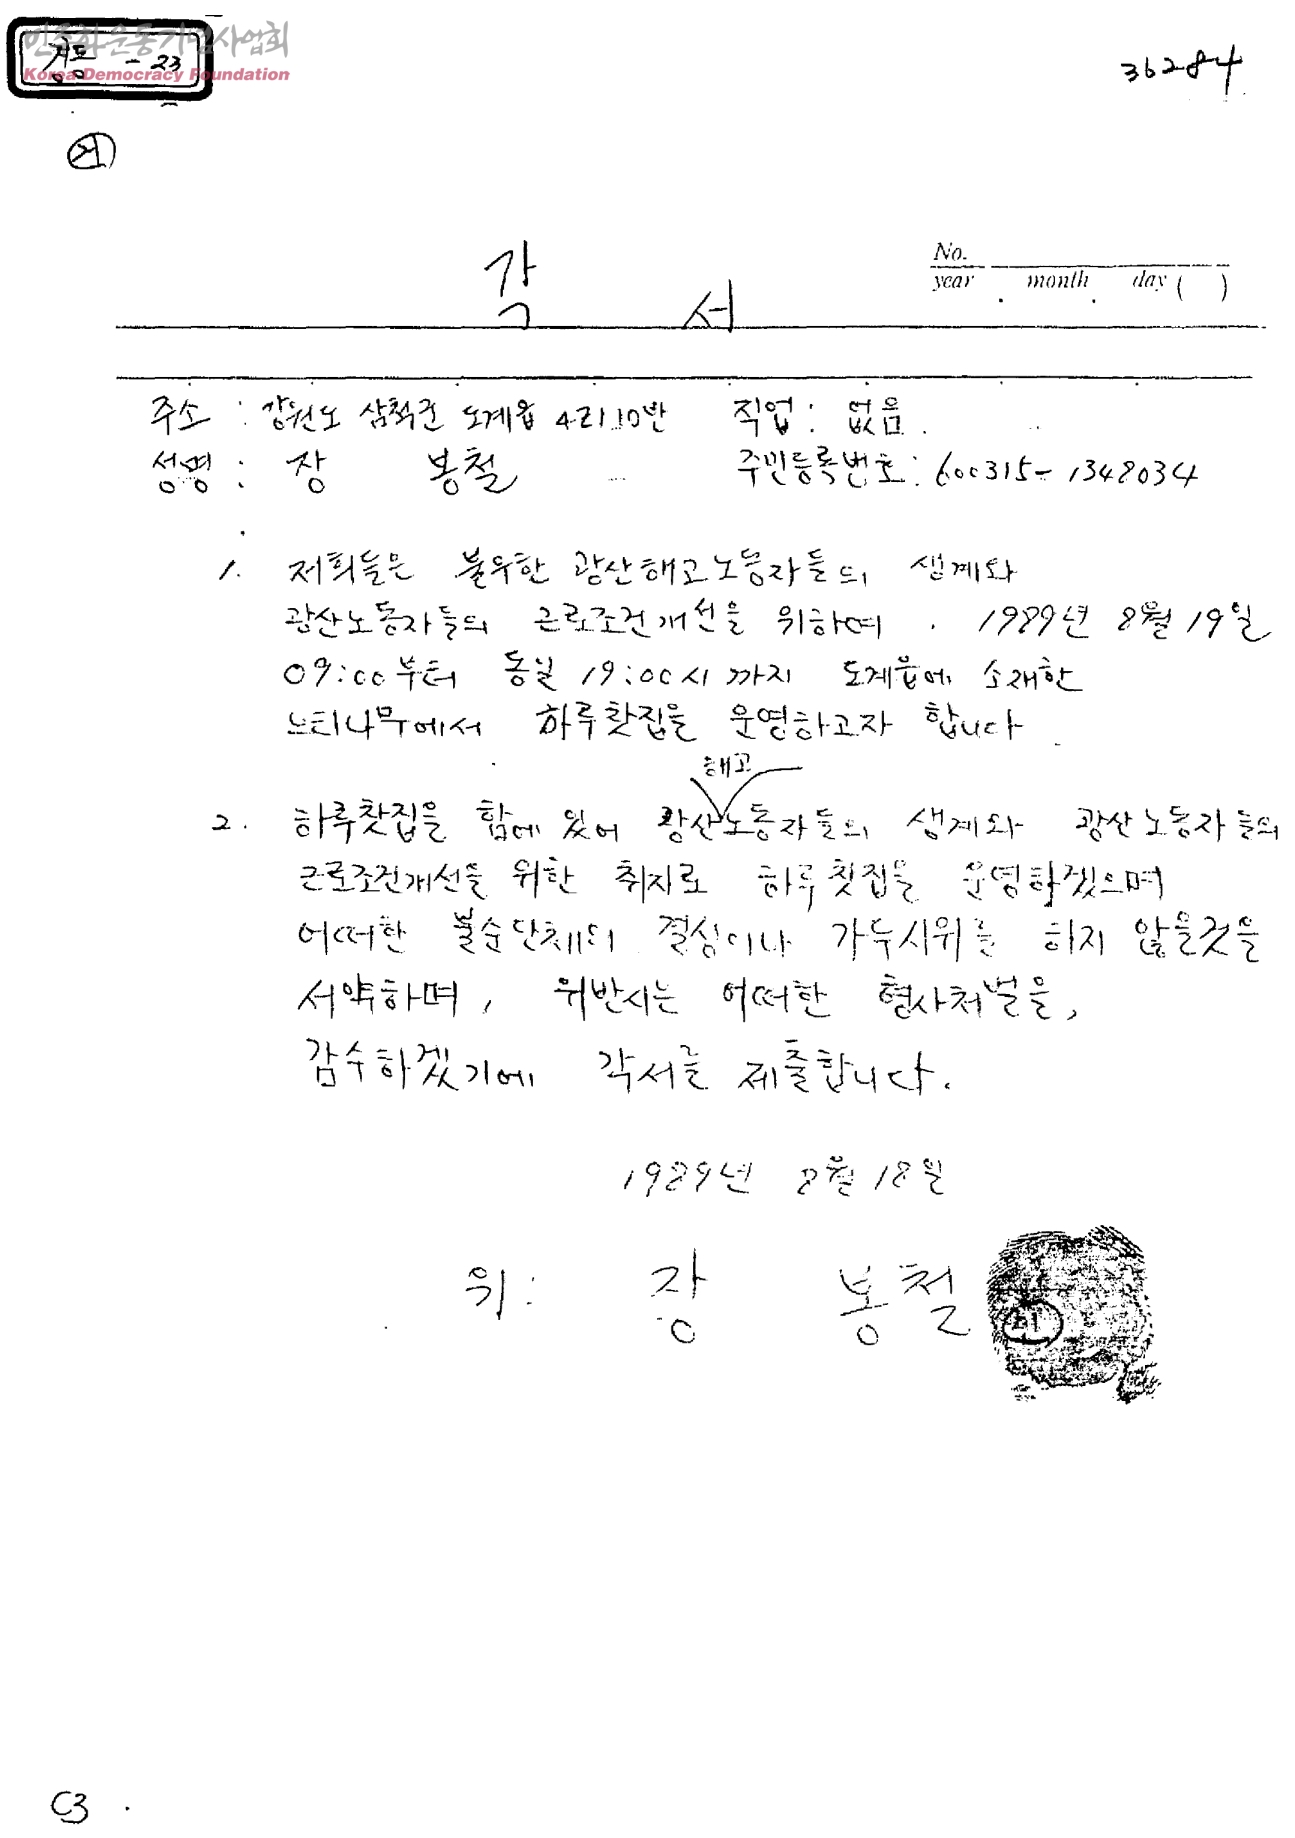 민주화운동기념사업회
Korea Democracy Foundation
- 23
36284
각 서
No.
year . month . day ( )
주소 : 강원도 삼척군 도계읍 4리 10반 직업 : 없음 .
성명 : 장 봉철 주민등록번호 : 600315-1348034
1. 저희들은 불우한 광산해고노동자들의 생계와
광산노동자들의 근로조건개선을 위하여 . 1989년 8월 19일
09:00부터 동일 19:00시 까지 도계읍에 소재한
느티나무에서 하루찻집을 운영하고자 합니다
해고
2. 하루찻집을 함에 있어 광산노동자들의 생계와 광산노동자들의
근로조건개선을 위한 취지로 하루찻집을 운영하겠으며
어떠한 불순단체의 결성이나 가두시위를 하지 않을것을
서약하며, 위반시는 어떠한 형사처벌을,
감수하겠기에 각서를 제출합니다.
1989년 8월 18일
위 : 장 봉철